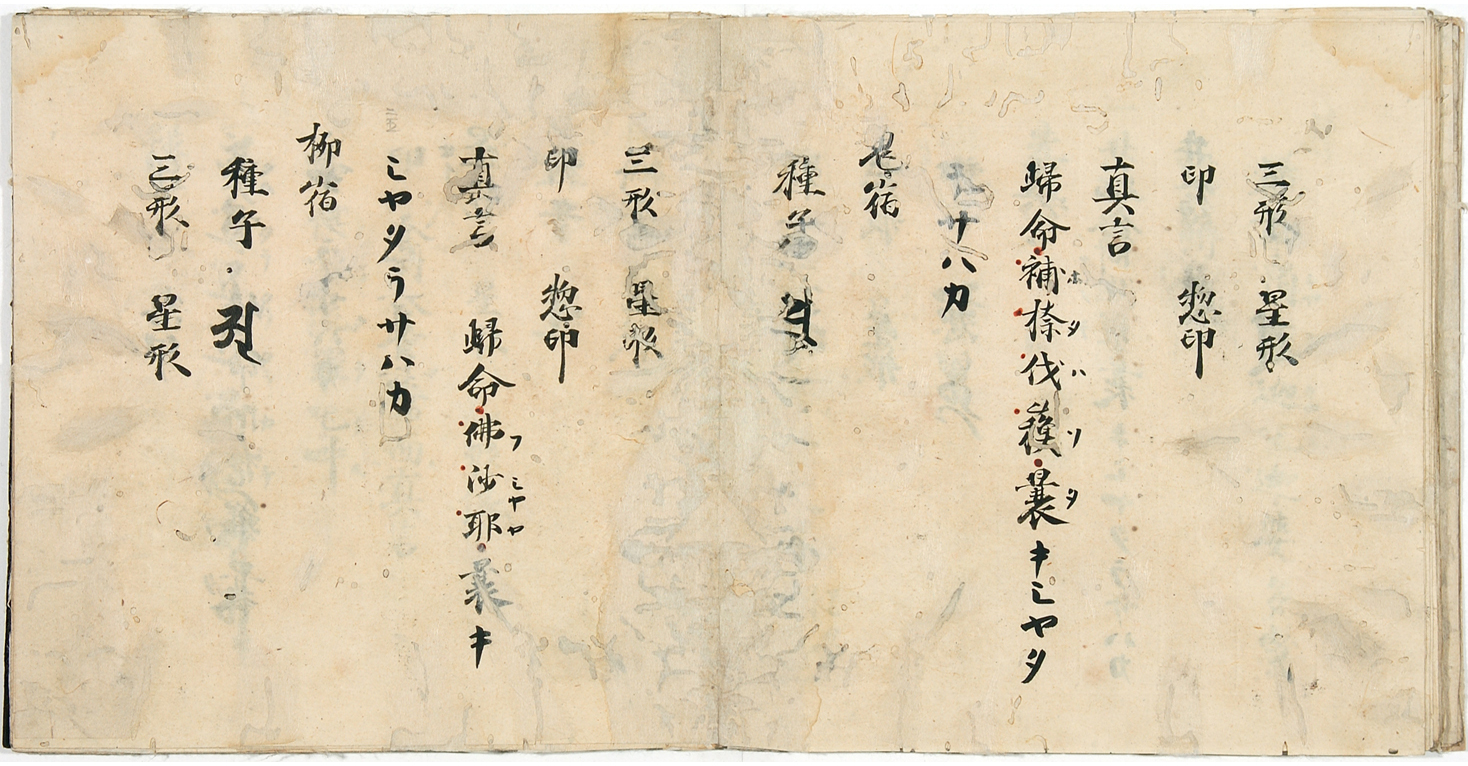 三形 星形
印 惣印
真言
歸命補捺伐蘓曩キミヤタ
ホタハソタ
サハカ
鬼宿
種子
三形 星形
印 惣印
真言 歸命佛沙耶曩キ
フミヤヤ
ミヤタラサハカ
柳宿
種子
三形 星形